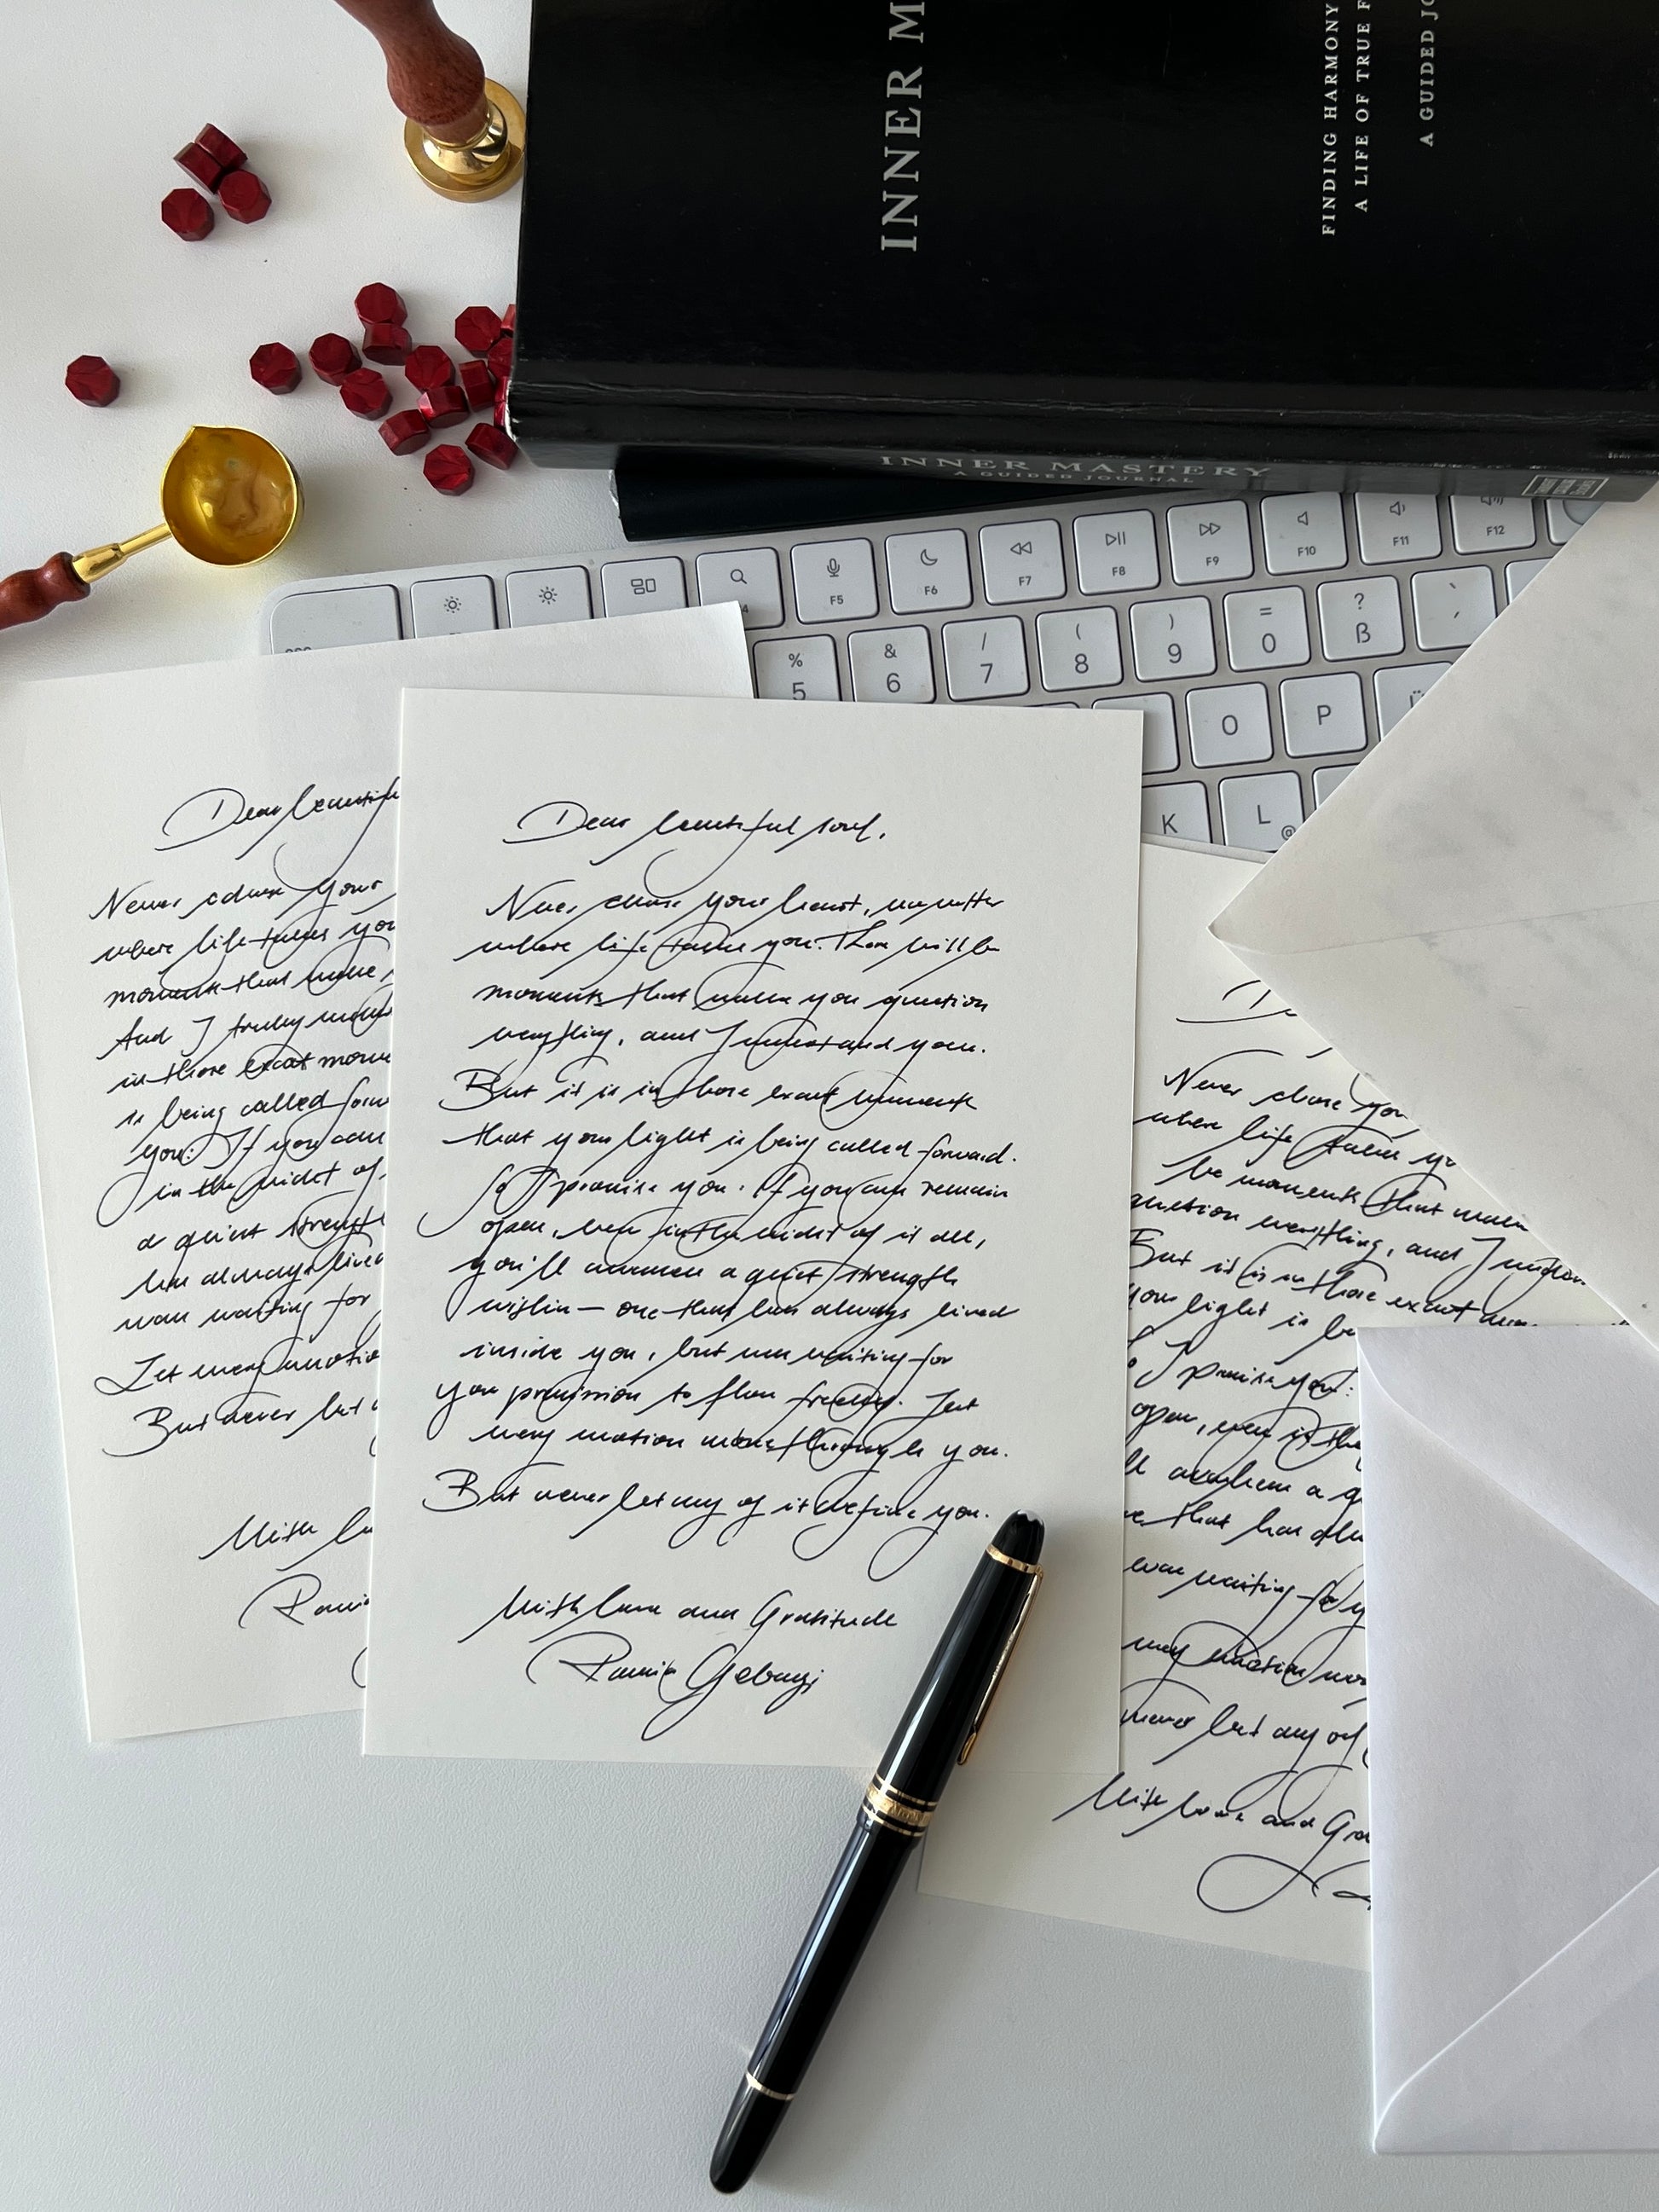 INNER M
FINDING HARMONY
A LIFE OF TRUE F
A GUIDED JO
INNER MASTERY
A GUIDED JOURNAL
F5
F6
F7
F8
F9
F10
F11
F12
% & / ( ) = ? `
5 6 7 8 9 0 ß ´
O P Ü
K L @
Dear beautiful soul,
Never close your heart, no matter
where life takes you. There will be
moments that make you question
everything, and I understand you.
But it is in those exact moments
that your light is being called forward.
So I promise you: If you can remain
open, even in the midst of it all,
you'll awaken a quiet strength
within — one that has always lived
inside you, but was waiting for
your permission to flow freely. Let
every emotion move through you.
But never let any of it define you.
With love and Gratitude
Dear beautifu
Never close your
where life takes you
moments that make
And I truly
in those exact mome
is being called forw
you: If you can
in the midst of
a quiet strength
has always lived
was waiting for
Let every emotio
But never let
With lo
D
Never close you
where life takes yo
be moments that make
question everything, and I under
But it is in those exact mom
your light is be
I promise you:
open, even in the
ll awaken a q
that has alw
was waiting for y
every emotion mov
never let any of
With love and Gra